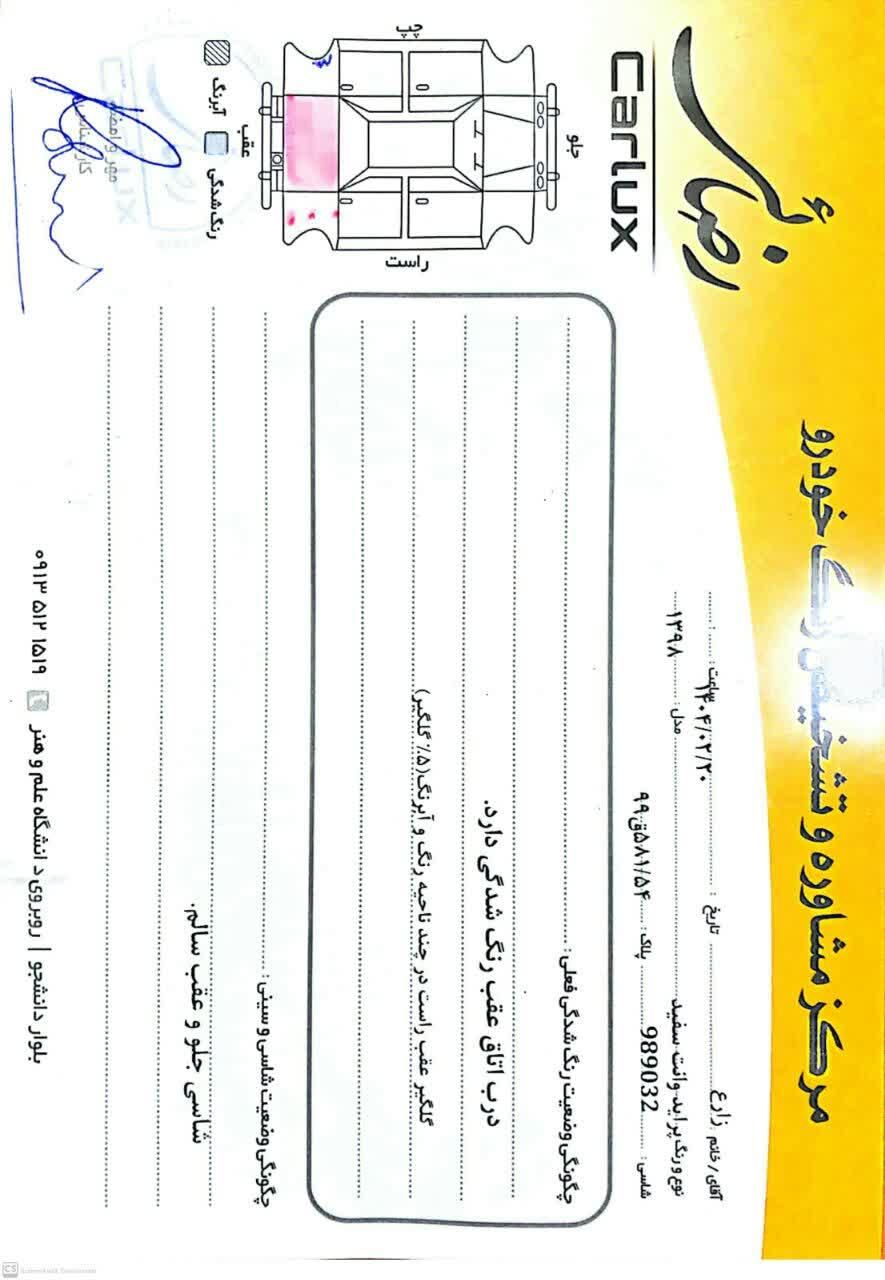 مرکز مشاوره و تشخیص رنگ خودرو
رضائی
Carlux
آقای / خانم زارع
تاریخ : ۱۴۰۴/۰۲/۲۰ ساعت :
نوع و رنگ پراید وانت سفید مدل : ۱۳۹۸
شاسی : 989032 پلاک : ۵۸۱/۵۴ق۹۹
چگونگی وضعیت رنگ شدگی فعلی :
درب اتاق عقب رنگ شدگی دارد.
گلگیر عقب راست در چند ناحیه رنگ و آبرنگ(۵٪ گلگیر)
چگونگی وضعیت شاسی و سینی :
شاسی جلو و عقب سالم.
چپ
جلو
عقب
راست
آبرنگ
رنگ شدگی
مهر و امضاء
کارشناس
بلوار دانشجو | روبروی دانشگاه علم و هنر ۰۹۱۳ ۵۱۲ ۱۵۱۹
CS